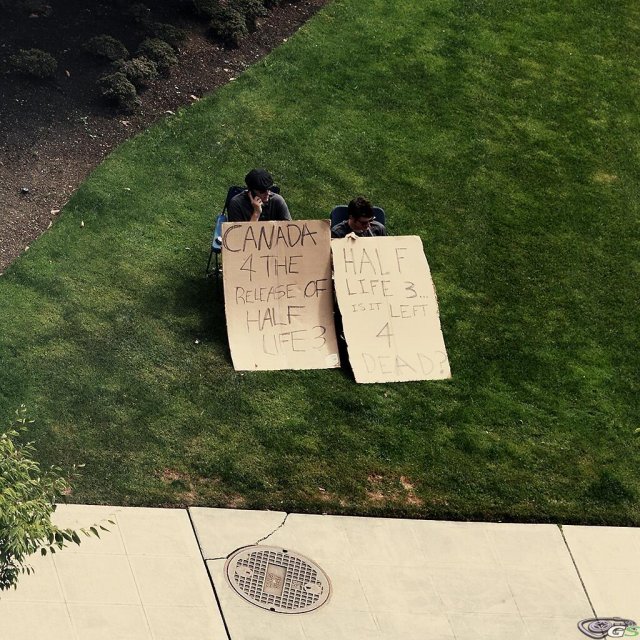 CANADA
4 THE
RELEASE OF
HALF
LIFE 3
HALF
LIFE 3...
IS IT LEFT
4
DEAD?
GS